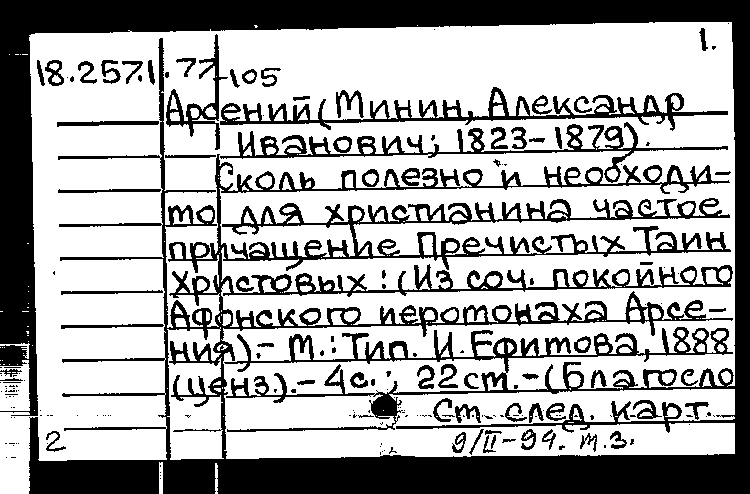 1.
18.257.1.77-105
Арсений (Минин, Александр
Иванович; 1823-1879).
Сколь полезно и необходи-
мо для христианина частое
причащение Пречистых Таин
Христовых : (Из соч. покойного
Афонского иеромонаха Арсе-
ния).- М.: Тип. И. Ефимова, 1888
(ценз.).- 4с.; 22см.-(Благосло
См. след. карт.
2
9/II-99. м.з.